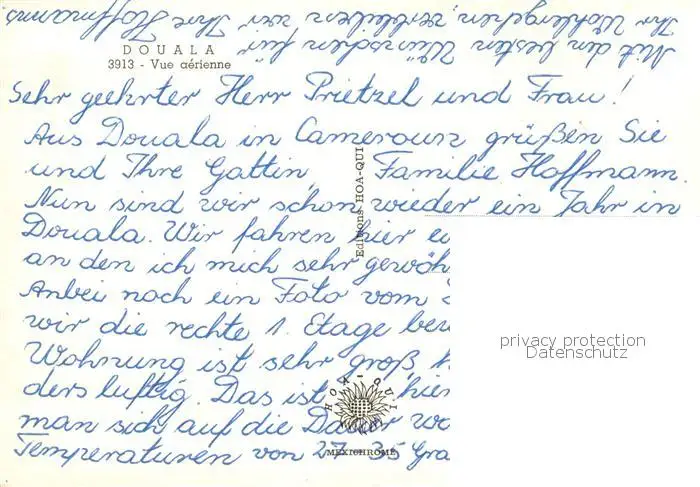 Mit den besten Wünschen für
Ihr Wohlergehen, verbleiben wir Ihre Hoffmanns
DOUALA
3913 - Vue aérienne
Sehr geehrter Herr Prietzel und Frau!
Aus Douala in Cameroun grüßen Sie
und Ihre Gattin, Familie Hoffmann.
Nun sind wir schon wieder ein Jahr in
Douala. Wir fahren hier ei
an den ich mich sehr gewöh
Anbei noch ein Foto vom
wir die rechte 1. Etage bew
Wohnung ist sehr groß,
ders luftig. Das ist hier
man sich auf die Dauer wo
Temperaturen von 27-35 Gra
Editions HOA-QUI
HOA-QUI
MEXICHROME
privacy protection
Datenschutz